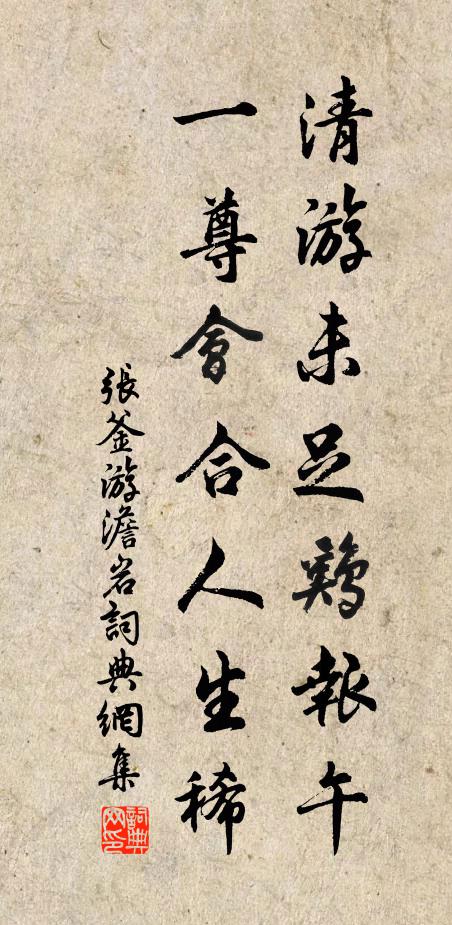 清游未足鷄報午
一尊會合人生稀
張釜游澹岩詞典網集
詞典网印